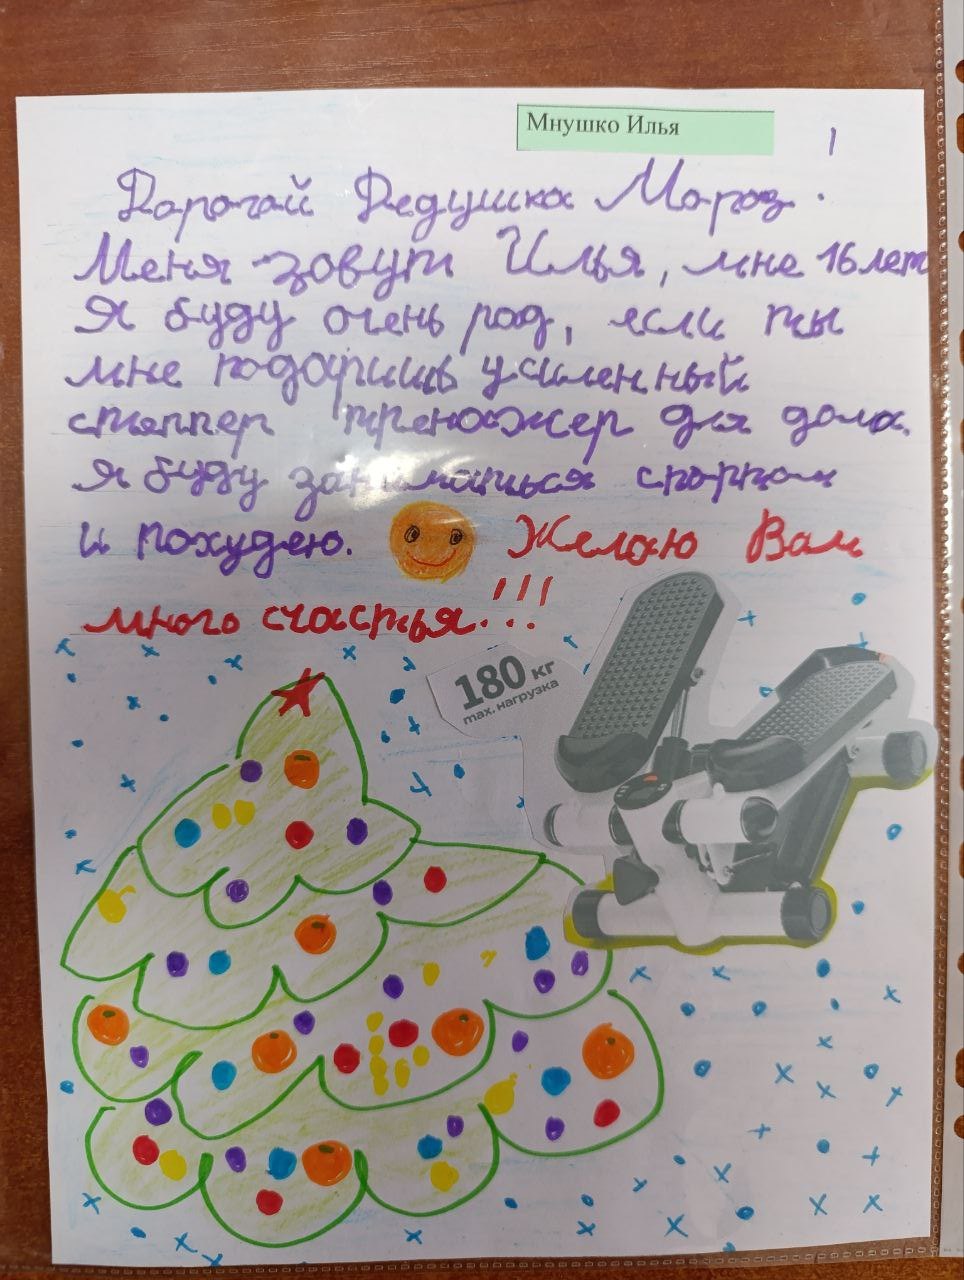 Мнушко Илья
1
Дарогай Дедушка Мороз.
Меня зовут Илья, мне 16 лет
Я буду очень рад, если ты
мне подаришь усиленный
степпер тренажер для дома.
Я буду заниматься спортом
и похудею. Желаю Вам
много счастья...!!!
180 кг
max. нагрузка